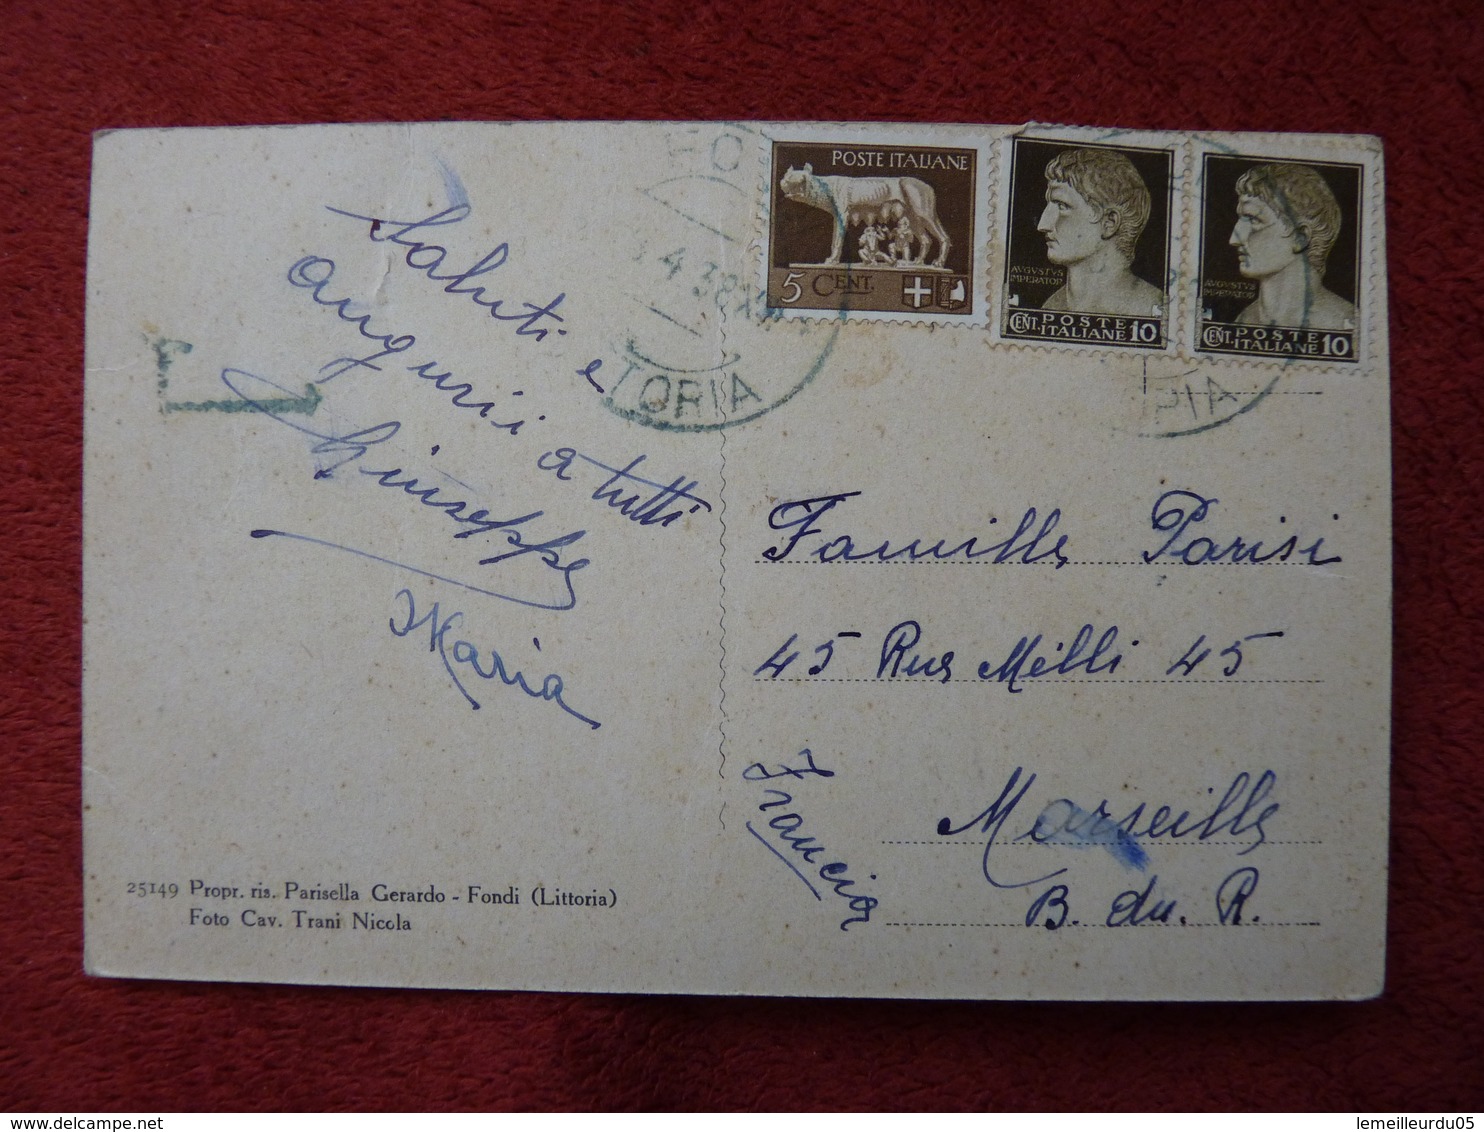 Saluti e
auguri a tutti
Ghiuseppe
Maria
POSTE ITALIANE
5 CENT.
AVGVSTVS
IMPERATOR
CENT. POSTE ITALIANE 10
AVGVSTVS
IMPERATOR
CENT. POSTE ITALIANE 10
FO
4 38 XVI
TORIA
RIA
T
Famille Parisi
45 Rue Mèlli 45
Marseille
B. du. R.
Francia
25149 Propr. ris. Parisella Gerardo - Fondi (Littoria)
Foto Cav. Trani Nicola
delcampe.net
lemeilleurdu05